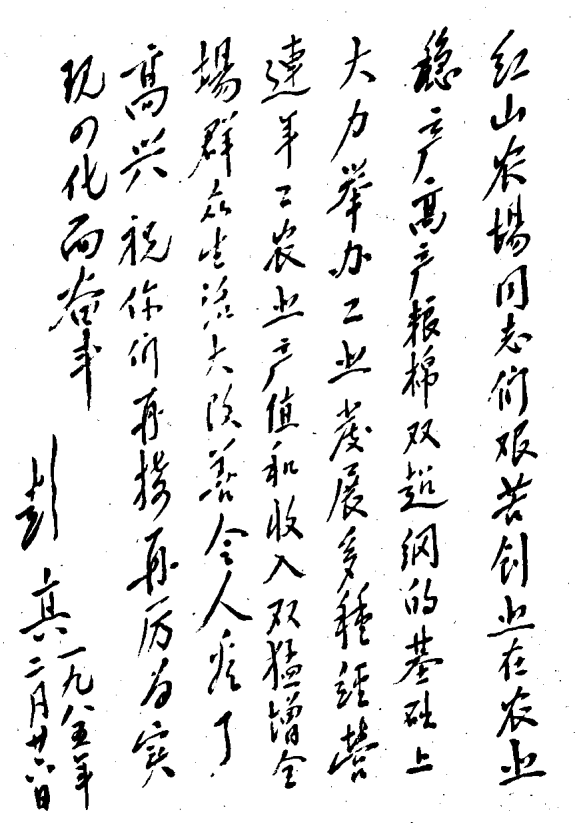 红山农場同志们艰苦创业在农业
稳产高产粮棉双超纲的基础上
大力举办工业发展多種経营
連年工农业产值和收入双猛增全
場群众生活大改善令人看了
高兴祝你们再接再厉为实
现四化而奋斗
彭真
一九八五年
二月廿六日